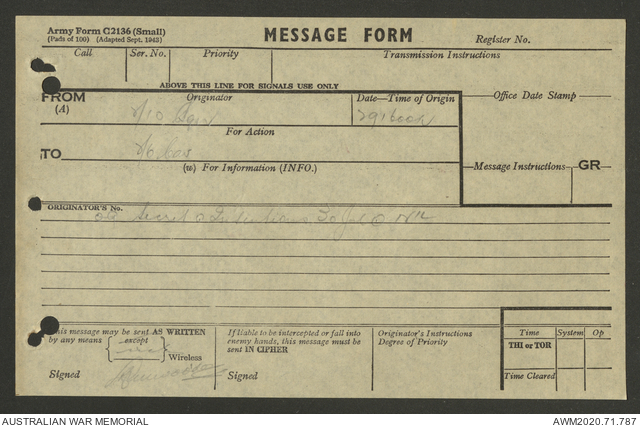 Army Form C2136 (Small)
(Pads of 100) (Adapted Sept. 1943)
MESSAGE FORM
Register No.
Call Ser. No. Priority Transmission Instructions
ABOVE THIS LINE FOR SIGNALS USE ONLY
FROM
(A)
Originator
Date—Time of Origin
Office Date Stamp
2/10
291600K
For Action
TO
(W) For Information (INFO.)
Message Instructions GR
ORIGINATOR'S No.
Secret
This message may be sent AS WRITTEN
by any means except
Wireless
Signed
If liable to be intercepted or fall into
enemy hands, this message must be
sent IN CIPHER
Signed
Originator's Instructions
Degree of Priority
Time System Op
THI or TOR
Time Cleared
AUSTRALIAN WAR MEMORIAL
AWM2020.71.787